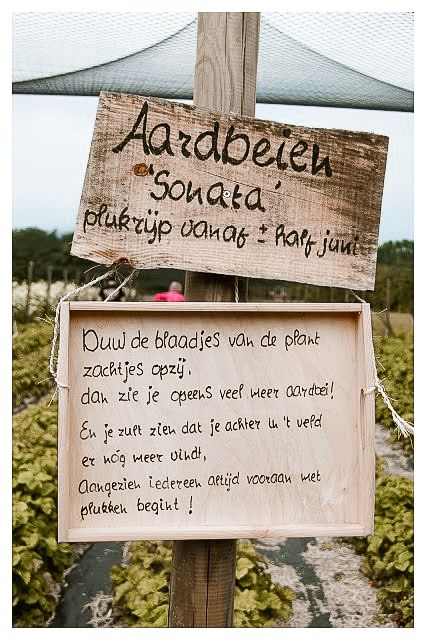 Aardbeien
'Sonata'
plukrijp vanaf ± half juni
Duw de blaadjes van de plant
zachtjes opzij,
dan zie je opeens veel meer aardbei!
En je zult zien dat je achter in 't veld
er nóg meer vindt,
Aangezien iedereen altijd vooraan met
plukken begint !